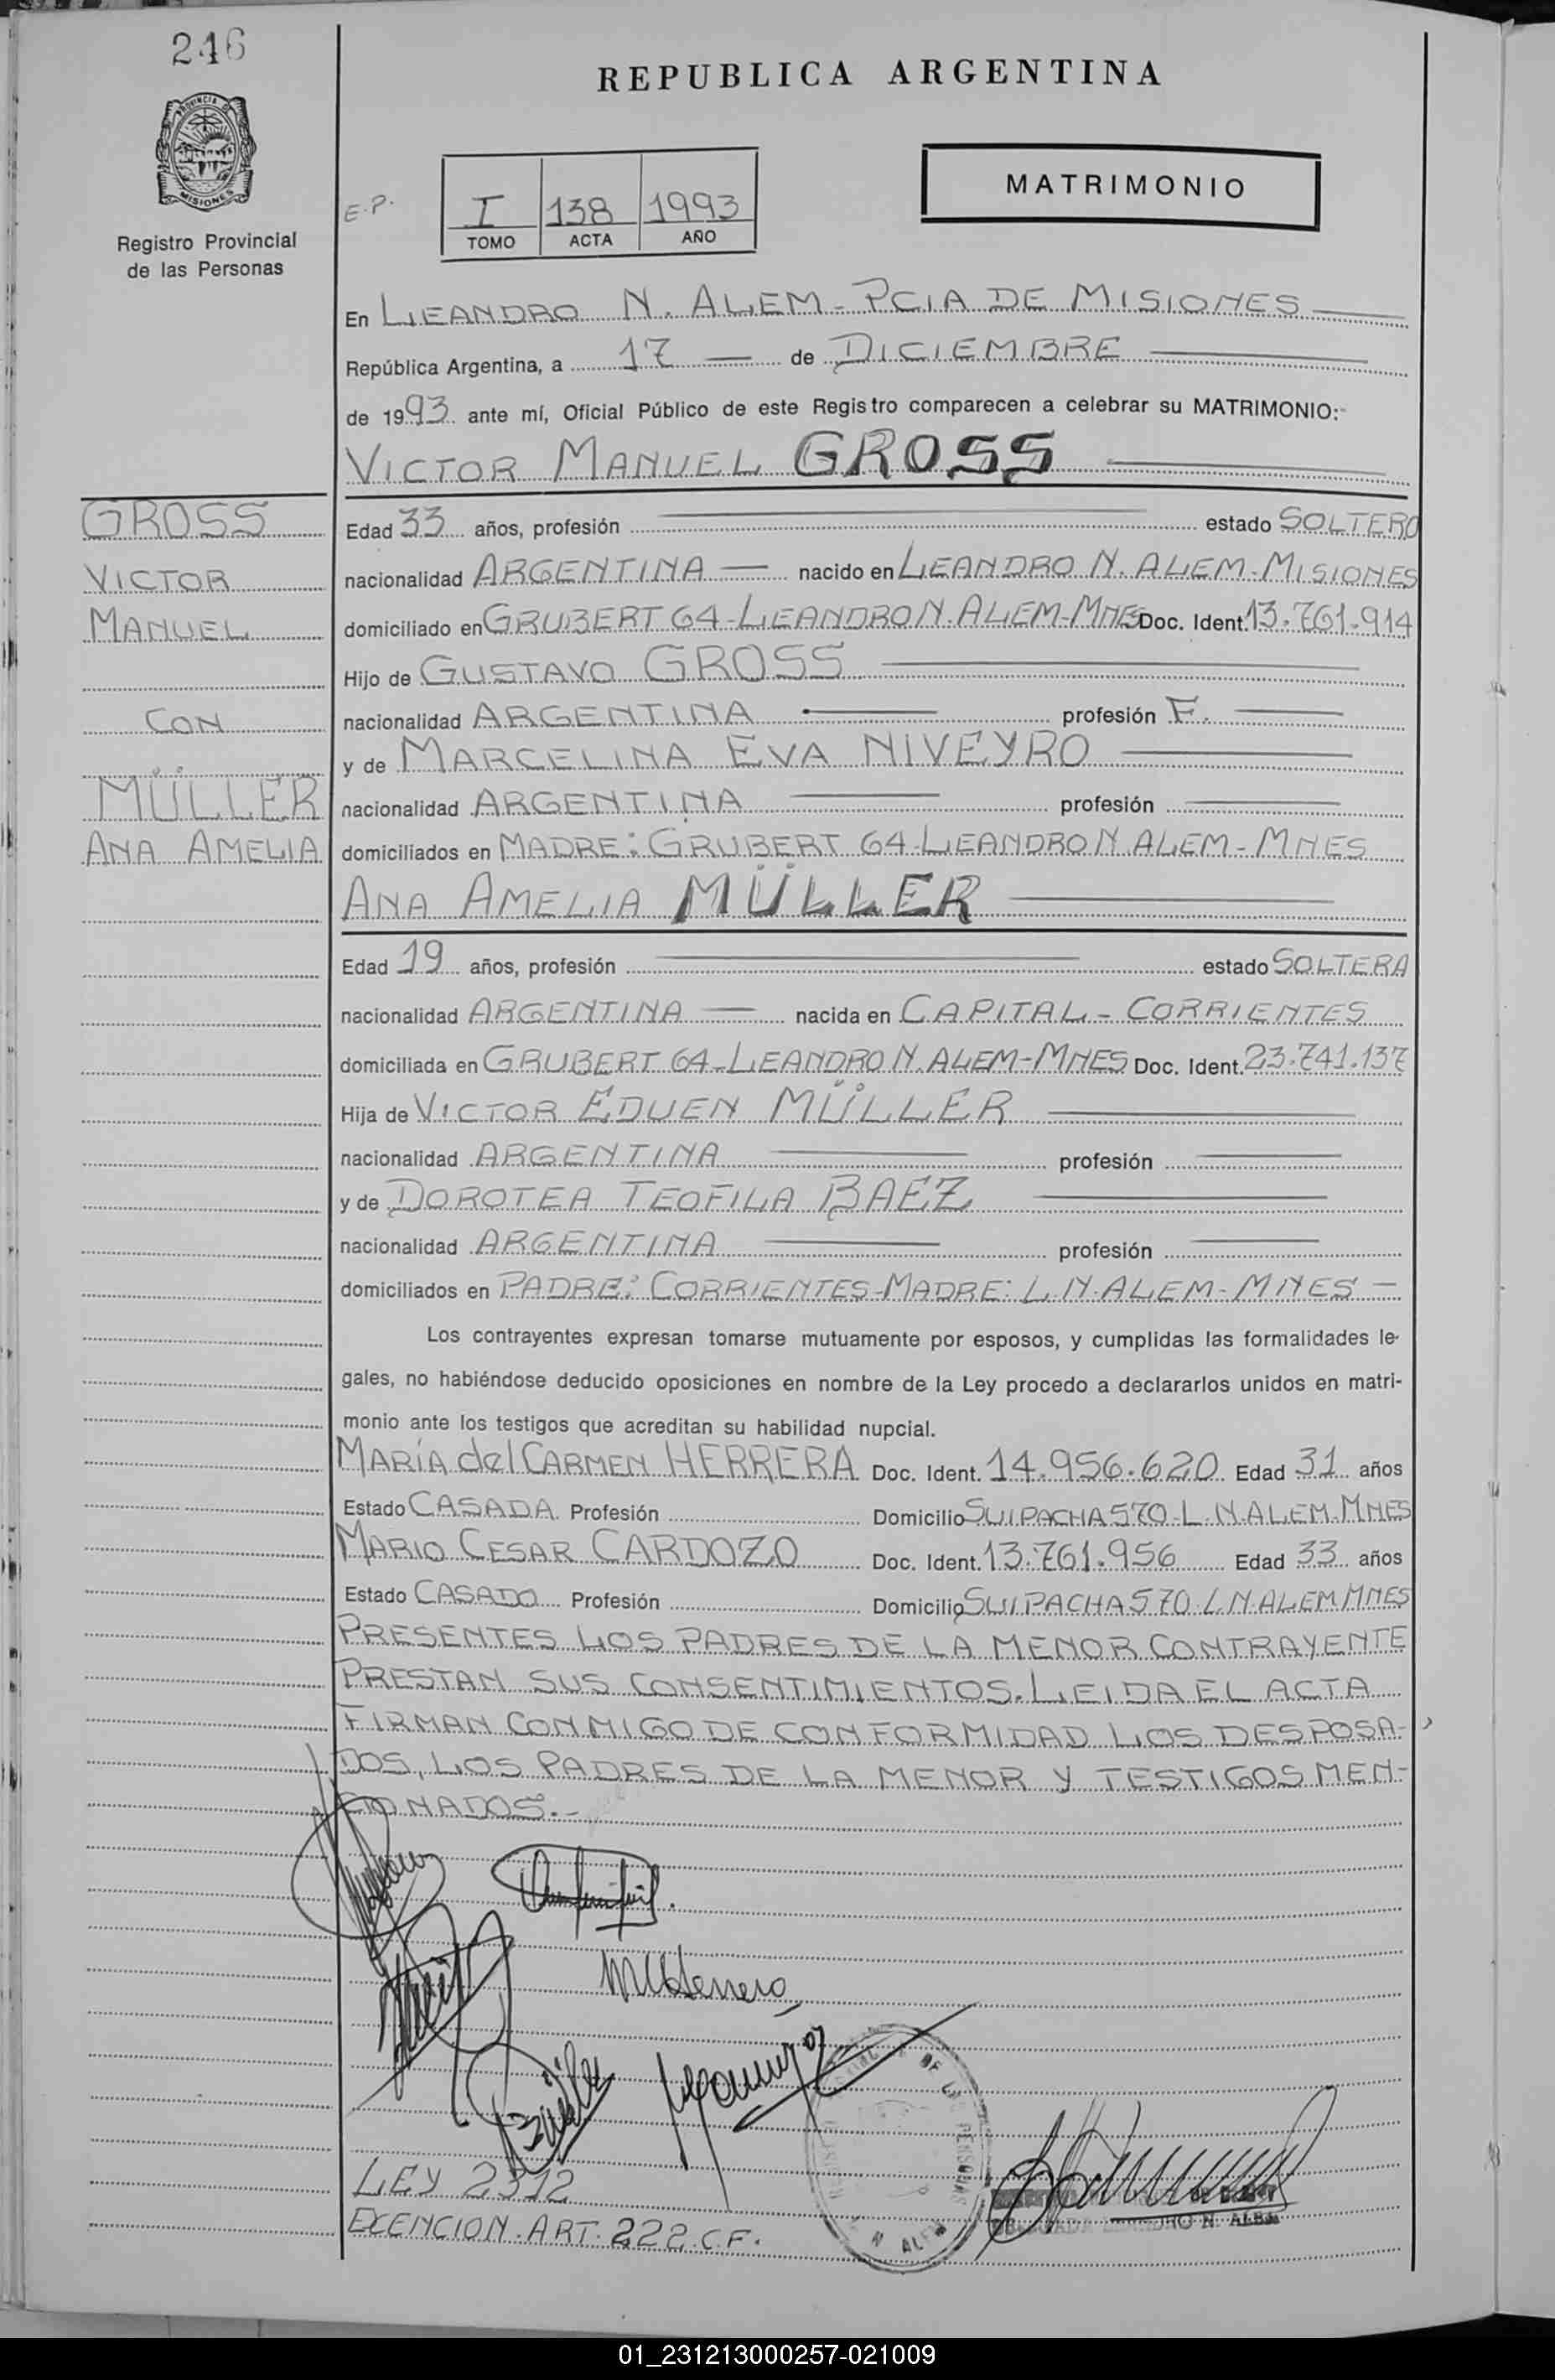 246
REPUBLICA ARGENTINA
PROVINCIA DE
MISIONES
Registro Provincial
de las Personas
E.P.
I 138 1993
TOMO ACTA AÑO
MATRIMONIO
En LEANDRO N. ALEM - PCIA DE MISIONES
República Argentina, a 17 de DICIEMBRE
de 1993 ante mí, Oficial Público de este Registro comparecen a celebrar su MATRIMONIO:-
VICTOR MANUEL GROSS
GROSS
VICTOR
MANUEL
CON
MÜLLER
ANA AMELIA
Edad 33 años, profesión estado SOLTERO
nacionalidad ARGENTINA nacido en LEANDRO N. ALEM-MISIONES
domiciliado en GRUBERT 64-LEANDRO N. ALEM-MNES Doc. Ident. 13.761.914
Hijo de GUSTAVO GROSS
nacionalidad ARGENTINA profesión F.
y de MARCELINA EVA NIVEYRO
nacionalidad ARGENTINA profesión
domiciliados en MADRE: GRUBERT 64-LEANDRO N. ALEM-MNES
ANA AMELIA MÜLLER
Edad 19 años, profesión estado SOLTERA
nacionalidad ARGENTINA nacida en CAPITAL-CORRIENTES
domiciliada en GRUBERT 64-LEANDRO N. ALEM-MNES Doc. Ident. 23.741.137
Hija de VICTOR EDUEN MÜLLER
nacionalidad ARGENTINA profesión
y de DOROTEA TEOFILA BAEZ
nacionalidad ARGENTINA profesión
domiciliados en PADRE: CORRIENTES-MADRE: L.N.ALEM-MNES-
Los contrayentes expresan tomarse mutuamente por esposos, y cumplidas las formalidades le-
gales, no habiéndose deducido oposiciones en nombre de la Ley procedo a declararlos unidos en matri-
monio ante los testigos que acreditan su habilidad nupcial.
MARÍA del CARMEN HERRERA Doc. Ident. 14.956.620 Edad 31 años
Estado CASADA Profesión Domicilio SUIPACHA 570-L.N.ALEM.MNES
MARIO CESAR CARDOZO Doc. Ident. 13.761.956 Edad 33 años
Estado CASADO Profesión Domicilio SUIPACHA 570-L.N.ALEM.MNES
PRESENTES LOS PADRES DE LA MENOR CONTRAYENTE
PRESTAN SUS CONSENTIMIENTOS. LEIDA EL ACTA
FIRMAN CONMIGO DE CONFORMIDAD LOS DESPOSA-
DOS, LOS PADRES DE LA MENOR Y TESTIGOS MEN-
CIONADOS.-
MCHerrera
DE LAS PERSONAS
N. ALEM
LEANDRO N. ALEM
LEY 2312
EXENCION. ART. 222. C.F.
01_231213000257-021009